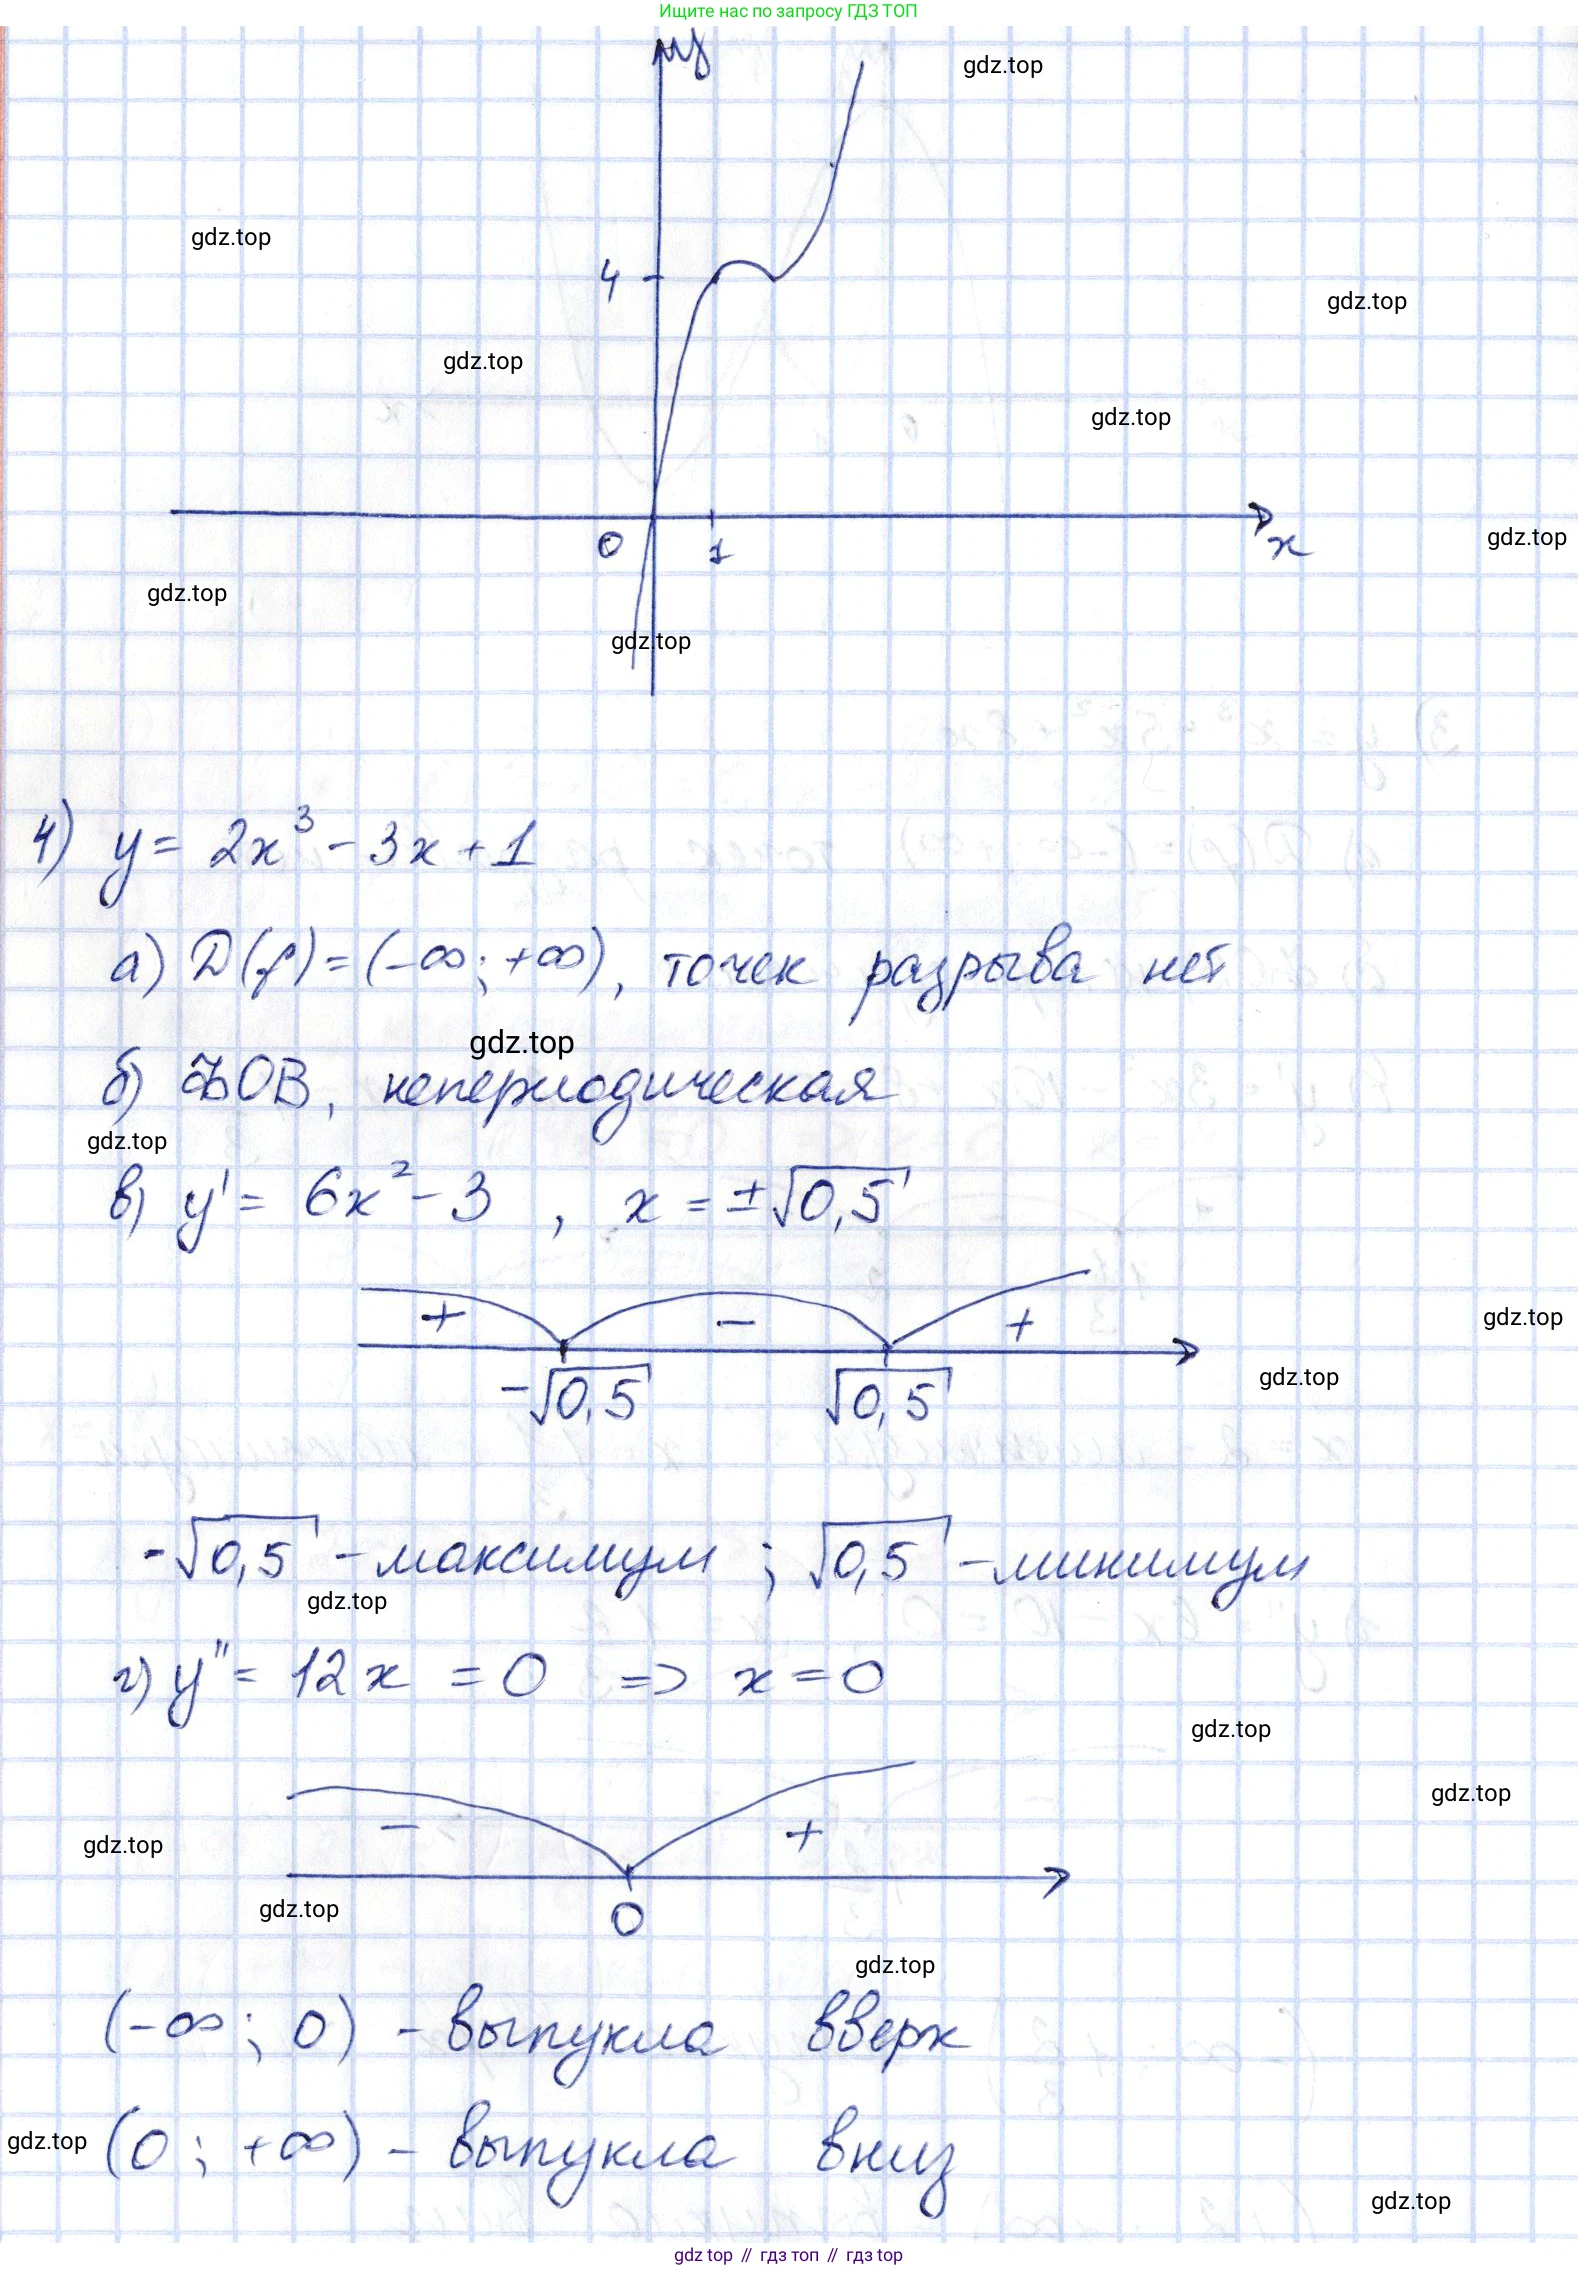 Ищите нас по запросу ГДЗ ТОП
y
gdz.top
gdz.top
4
gdz.top
gdz.top
gdz.top
0 1 x
gdz.top
gdz.top
gdz.top
4) y = 2x³ - 3x + 1
а) D(f) = (-∞; +∞), точек разрыва нет
gdz.top
б) ФОВ, непериодическая
gdz.top
в) y' = 6x² - 3 , x = ±√0,5
+ - +
gdz.top
-√0,5 √0,5
gdz.top
-√0,5 - максимум ; √0,5 - минимум
gdz.top
г) y'' = 12x = 0 => x = 0
gdz.top
gdz.top
- +
gdz.top
0
gdz.top
gdz.top
(-∞; 0) - выпукла вверх
(0; +∞) - выпукла вниз
gdz.top
gdz.top
gdz top // гдз топ // гдз top